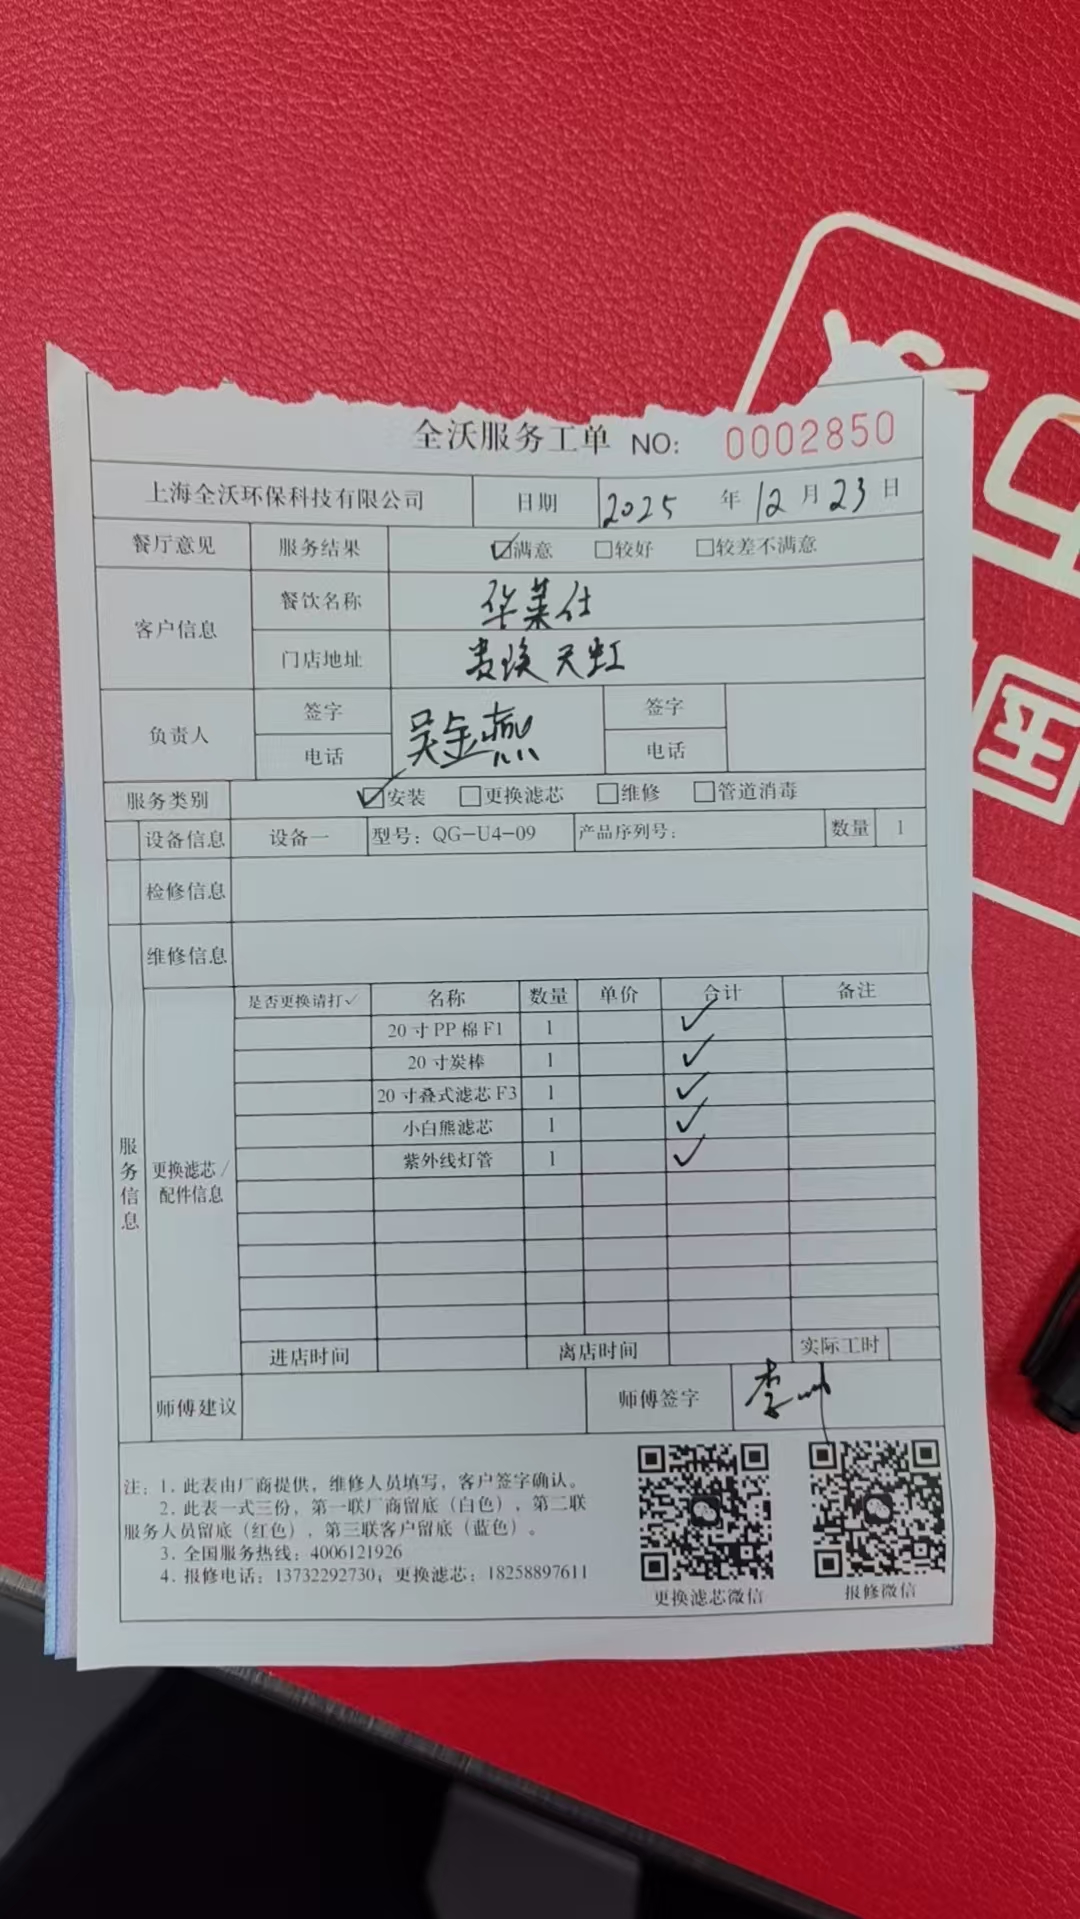 全沃服务工单 NO: 0002850
上海全沃环保科技有限公司 日期 2025 年 12 月 23 日
餐厅意见 服务结果 ☑满意 □较好 □较差不满意
客户信息 餐饮名称 华莱仕
门店地址 贵溪天虹
负责人 签字 吴金燕 签字
电话 电话
服务类别 ☑安装 □更换滤芯 □维修 □管道消毒
设备信息 设备一 型号：QG-U4-09 产品序列号： 数量 1
检修信息
维修信息
服务信息
更换滤芯/
配件信息
是否更换请打✓ 名称 数量 单价 合计 备注
20寸PP棉F1 1 ✓
20寸炭棒 1 ✓
20寸叠式滤芯F3 1 ✓
小白熊滤芯 1 ✓
紫外线灯管 1 ✓
进店时间 离店时间 实际工时
师傅建议 师傅签字 李
注：1. 此表由厂商提供，维修人员填写，客户签字确认。
2. 此表一式三份，第一联厂商留底（白色），第二联
服务人员留底（红色），第三联客户留底（蓝色）。
3. 全国服务热线：4006121926
4. 报修电话：13732292730；更换滤芯：18258897611
更换滤芯微信 报修微信